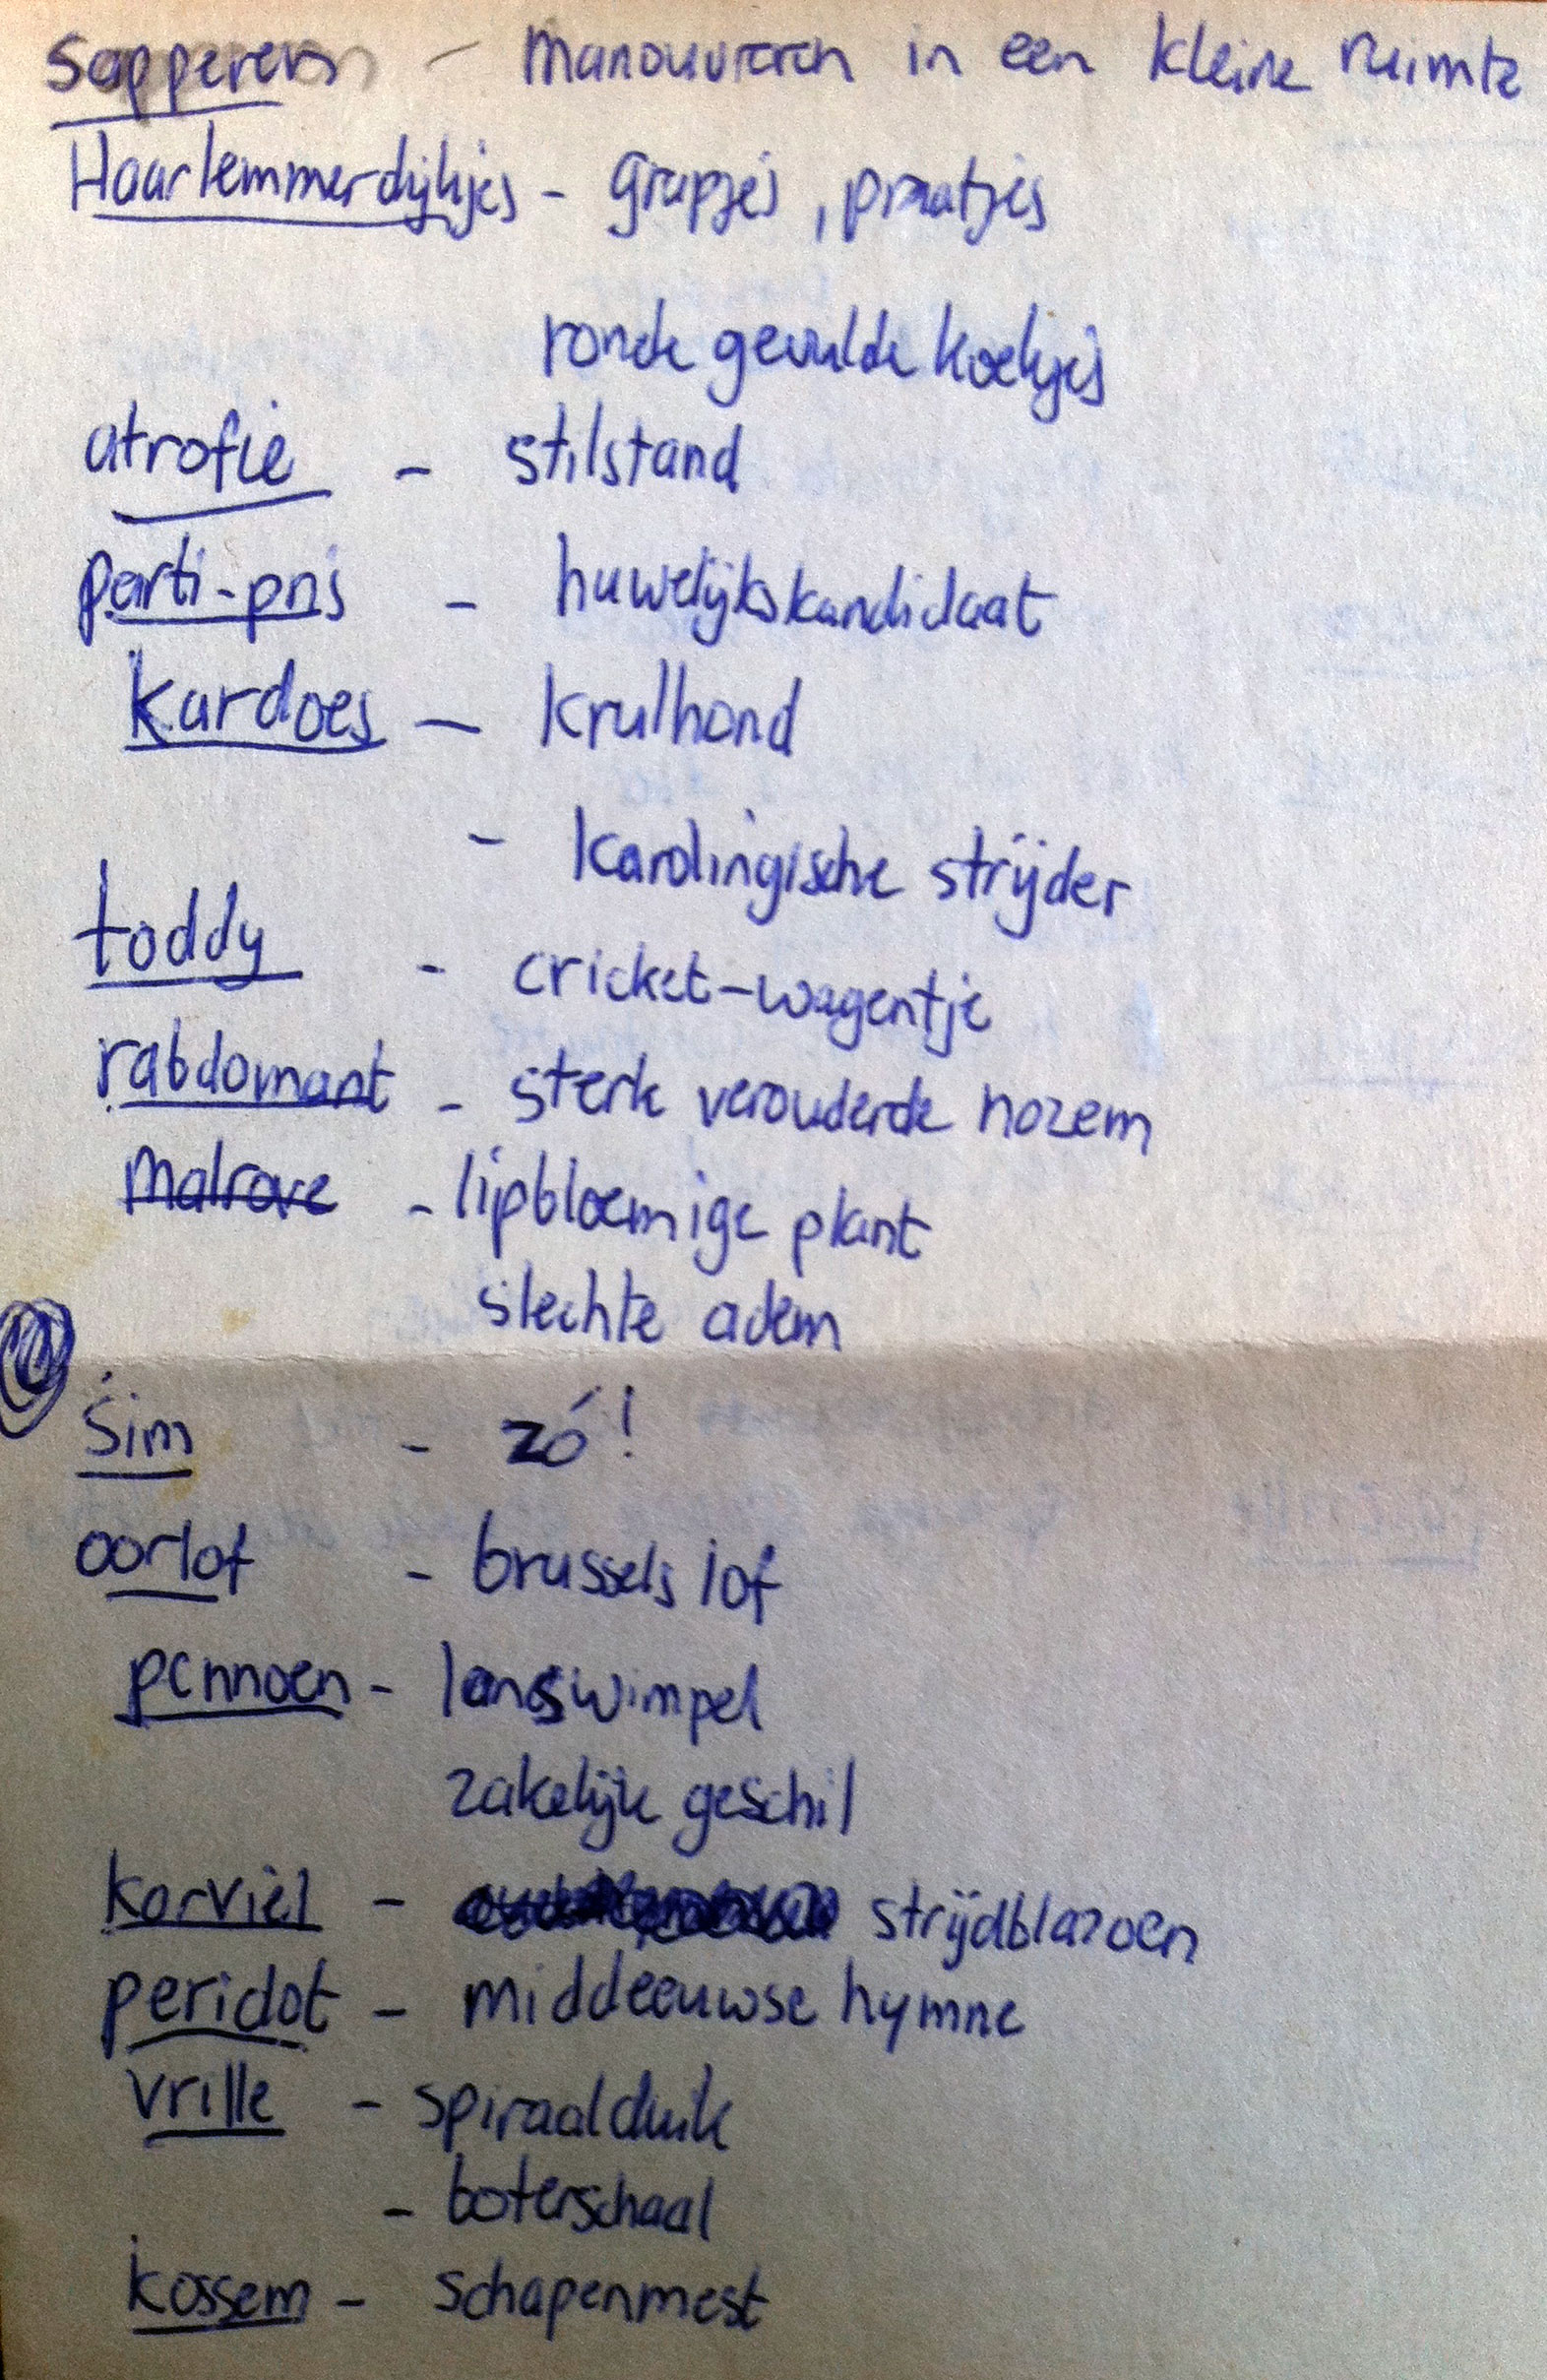 Sapperen - Manouvreren in een kleine ruimte
Haarlemmerdijkjes - grapjes, praatjes
ronde gevulde koekjes
atrofie - stilstand
parti-pris - huwelijkskandidaat
kardoes - krulhond
- karolingische strijder
toddy - cricket-wagentje
rabdomant - sterk verouderde nozem
Malrove - lipbloemige plant
slechte adem
sim - zó!
oorlof - brussels lof
pennoen - lanswimpel
zakelijk geschil
korviel - strijdblazoen
peridot - middeeuwse hymne
vrille - spiraalduik
- boterschaal
kossem - schapenmest